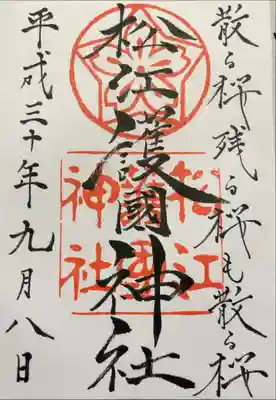 散る桜残る桜も散る桜
松江護國神社
松江
護國
神社
平成三十年九月八日